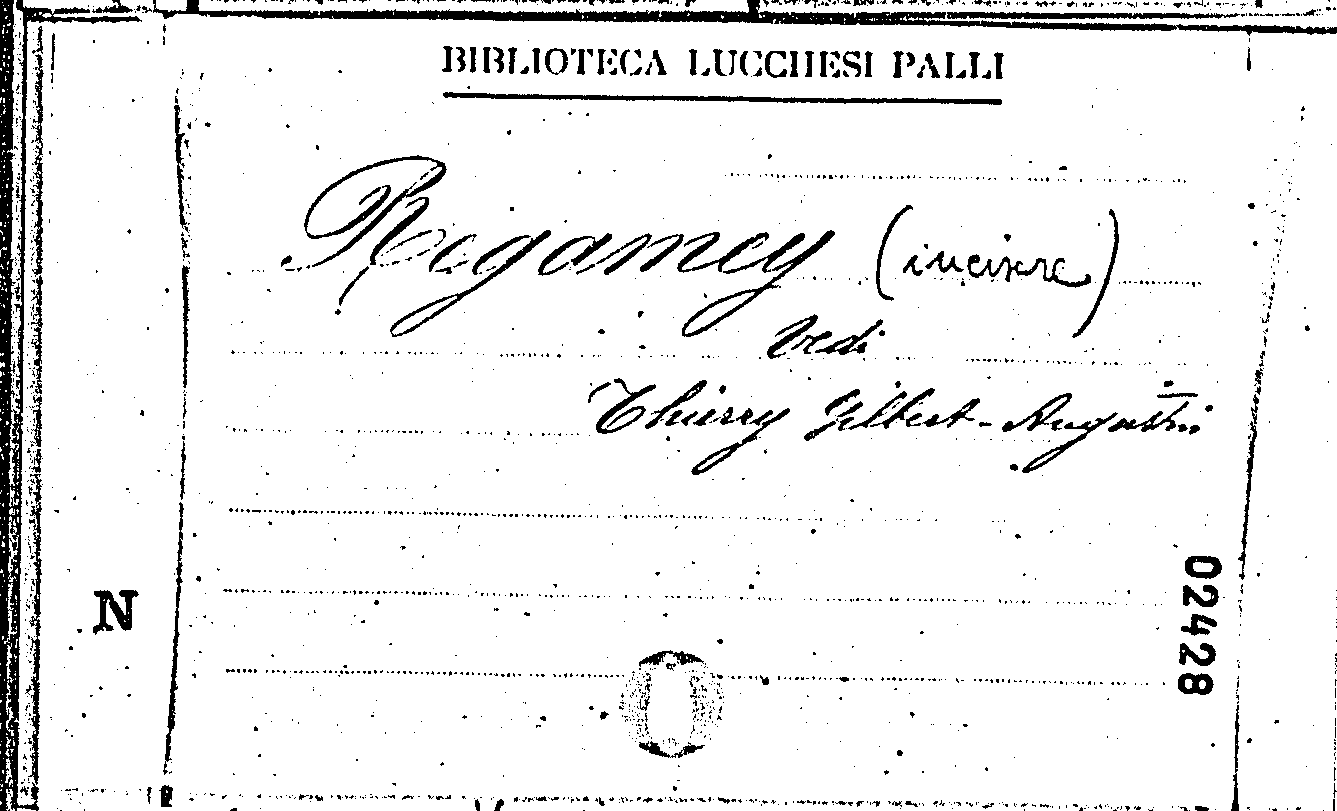 BIBLIOTECA LUCCHESI PALLI
Regamey (incisore)
Vedi
Thierry Gilbert-Augustin
N
02428